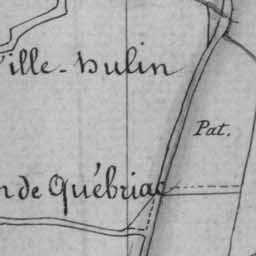 ille-hulin
Pat.
n de Québriac